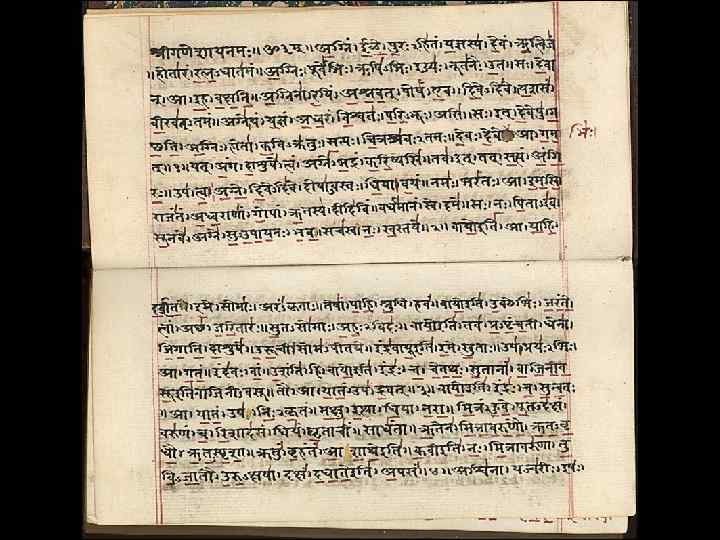 श्रीगणेशायनमः॥ॐ३म्॥अग्निं।ईळे।पुरःऽहितं।यज्ञस्य।देवं।ऋत्विजं
॥होतारं।रत्नऽधातमं॥अग्निः।पूर्वेभिः।ऋषिऽभिः।ईड्यः।नूतनैः।उत॥सः।देवा
न्।आ।इह।वक्षति॥अग्निना।रयिं।अश्नवत्।पोषं।एव।दिवेऽदिवे॥यशसं
वीरवत्ऽतमं॥अग्ने।यं।यज्ञं।अध्वरं।विश्वतः।परिऽभूः।असि॥सः।इत्।देवेषु।ग
च्छति॥अग्निः।होता।कविऽक्रतुः।सत्यः।चित्रश्रवःऽतमः॥देवः।देवे।आ।गम भिः।
त्॥१॥यत्।अंग।दाशुषे।त्वं।अग्ने।भद्रं।करिष्यसि॥तव।इत्।तत्।सत्यं।अंगि
रः॥उप।त्वा।अग्ने।दिवेऽदिवे।दोषाऽवस्तः।धिया।वयं॥नमः।भरंतः।आ।इमसि॥
राजंतं।अध्वराणां।गोपां।ऋतस्य।दीदिविं॥वर्धमानं।स्वे।दमे॥सः।नः।पिताऽइव
सूनवे।अग्ने।सुऽउपायनः।भव॥सचस्व।नः।स्वस्तये॥२॥वायोइति।आ।याहि।
दर्शत।इमे।सोमाः।अरंऽकृताः॥तेषां।पाहि।श्रुधि।हवं॥वायोइति।उक्थेभिः।जरंते।
त्वां।अच्छ।जरितारः॥सुतऽसोमाः।अहःऽविदः॥वायोइति।तव।प्रऽपृंचती।धेना।
जिगाति।दाशुषे॥उरूची।सोमऽपीतये॥इंद्रवायूइति।इमे।सुताः॥उप।प्रयःऽभिः।
आ।गतं॥इंदवः।वां।उशंति।हि॥वायोइति।इंद्रः।च।चेतथः।सुतानां।वाजिनीव
सूइतिवाजिनीऽवसू॥तौ।आ।यातं।उप।द्रवत्॥३॥वायोइति।इंद्रः।च।सुन्वतः
॥आ।यातं।उप।निःऽकृतं॥मक्षु।इत्था।धिया।नरा॥मित्रं।हुवे।पूतऽदक्षं।
वरुणं।च।रिशादसं॥धियं।घृताचीं।साधंता॥ऋतेन।मित्रावरुणौ।ऋतऽवृ
धौ।ऋतऽस्पृशा॥क्रतुं।बृहंतं।आशाथेइति॥कवीइति।नः।मित्रावरुणा।तु
विऽजातौ।उरुऽक्षया॥दक्षं।दधातेइति।अपसं॥४॥अश्विना।यज्वरीः।इषः।